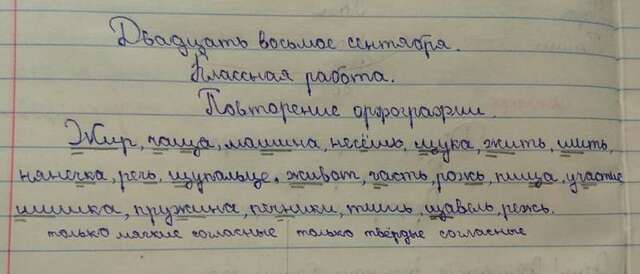 Двадцать восьмое сентября.
Классная работа.
Повторение орфографии.
Жир, чаща, машина, несёшь, щука, жить, шить,
нянечка, речь, щупальце, живот, часть, рожь, пища, участие
шишка, пружина, ночники, тишь, щавель, режь.
только мягкие согласные только твёрдые согласные